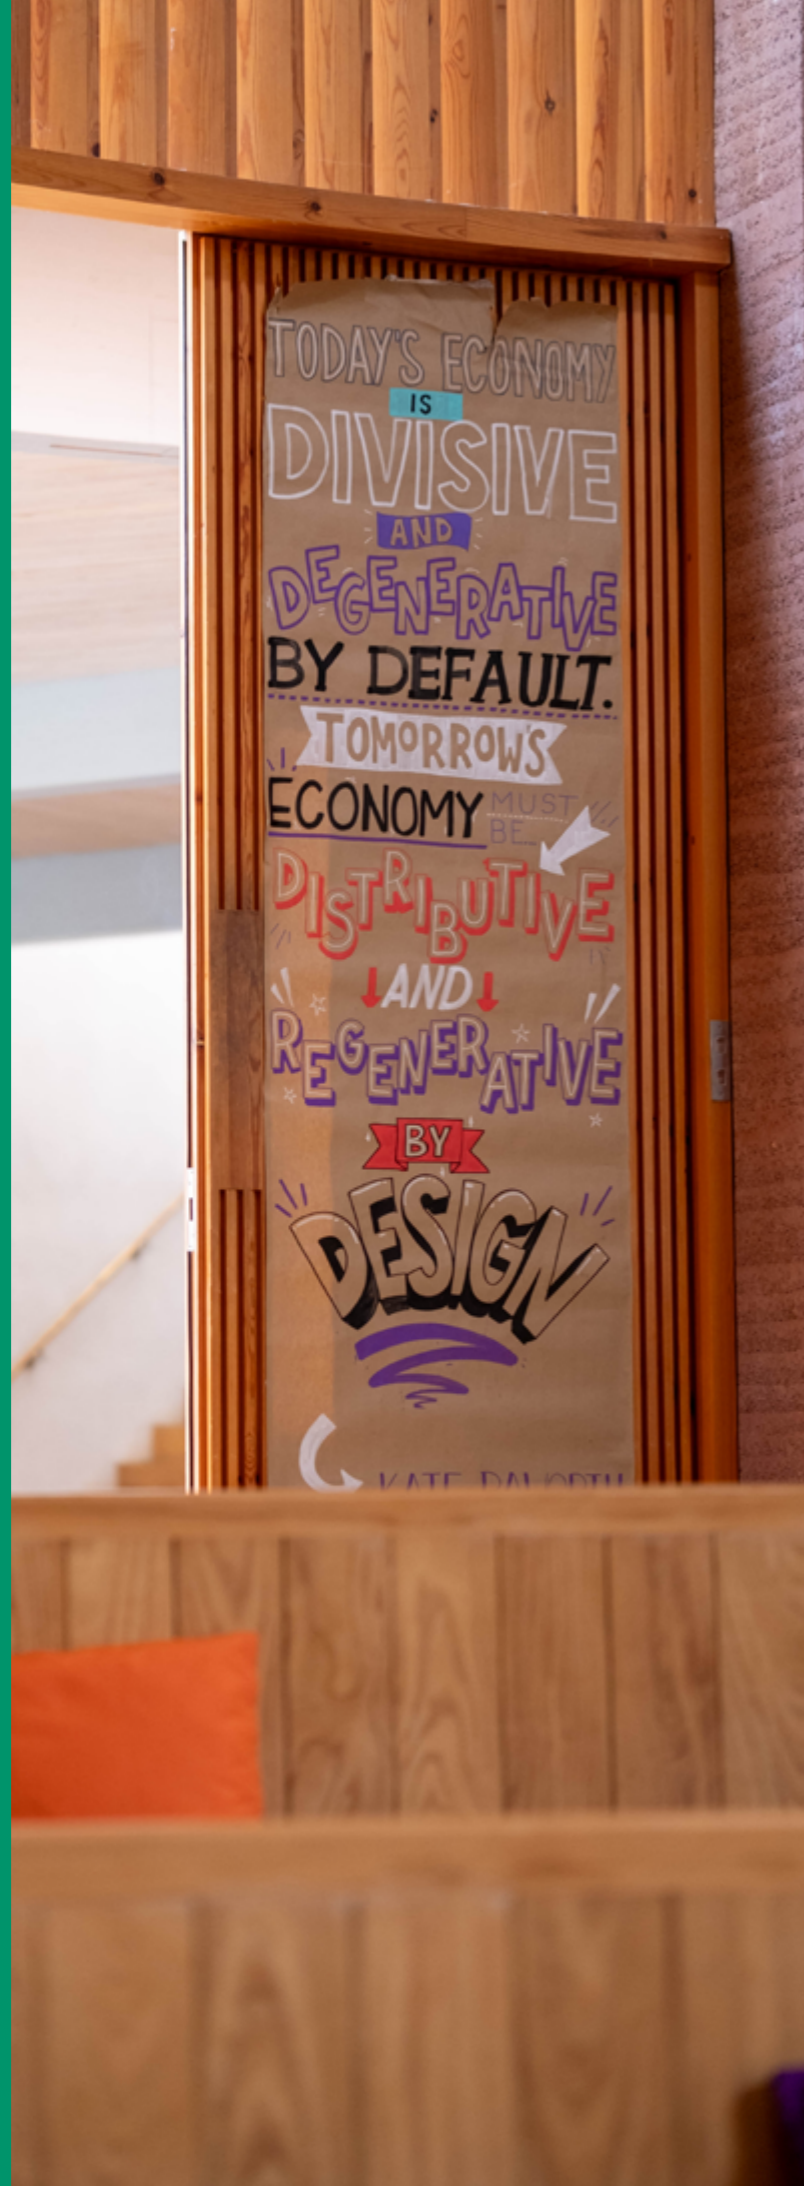 TODAY'S ECONOMY
IS
DIVISIVE
AND
DEGENERATIVE
BY DEFAULT.
TOMORROW'S
ECONOMY MUST
BE
DISTRIBUTIVE
AND
REGENERATIVE
BY
DESIGN
KATE RAWORTH